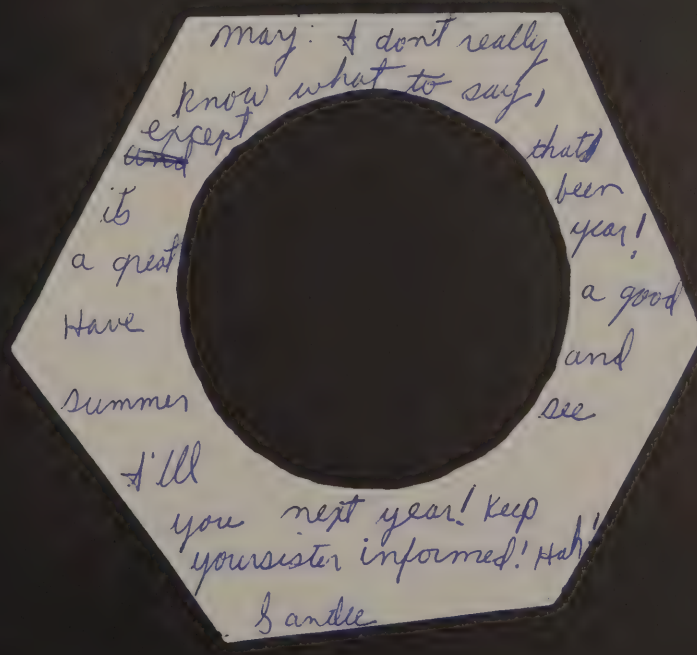 Mary: I don't really
know what to say,
except that
and
its been
a great year!
Have a good
summer and
I'll see
you next year! Keep
yoursister informed! Hah!
Sandee